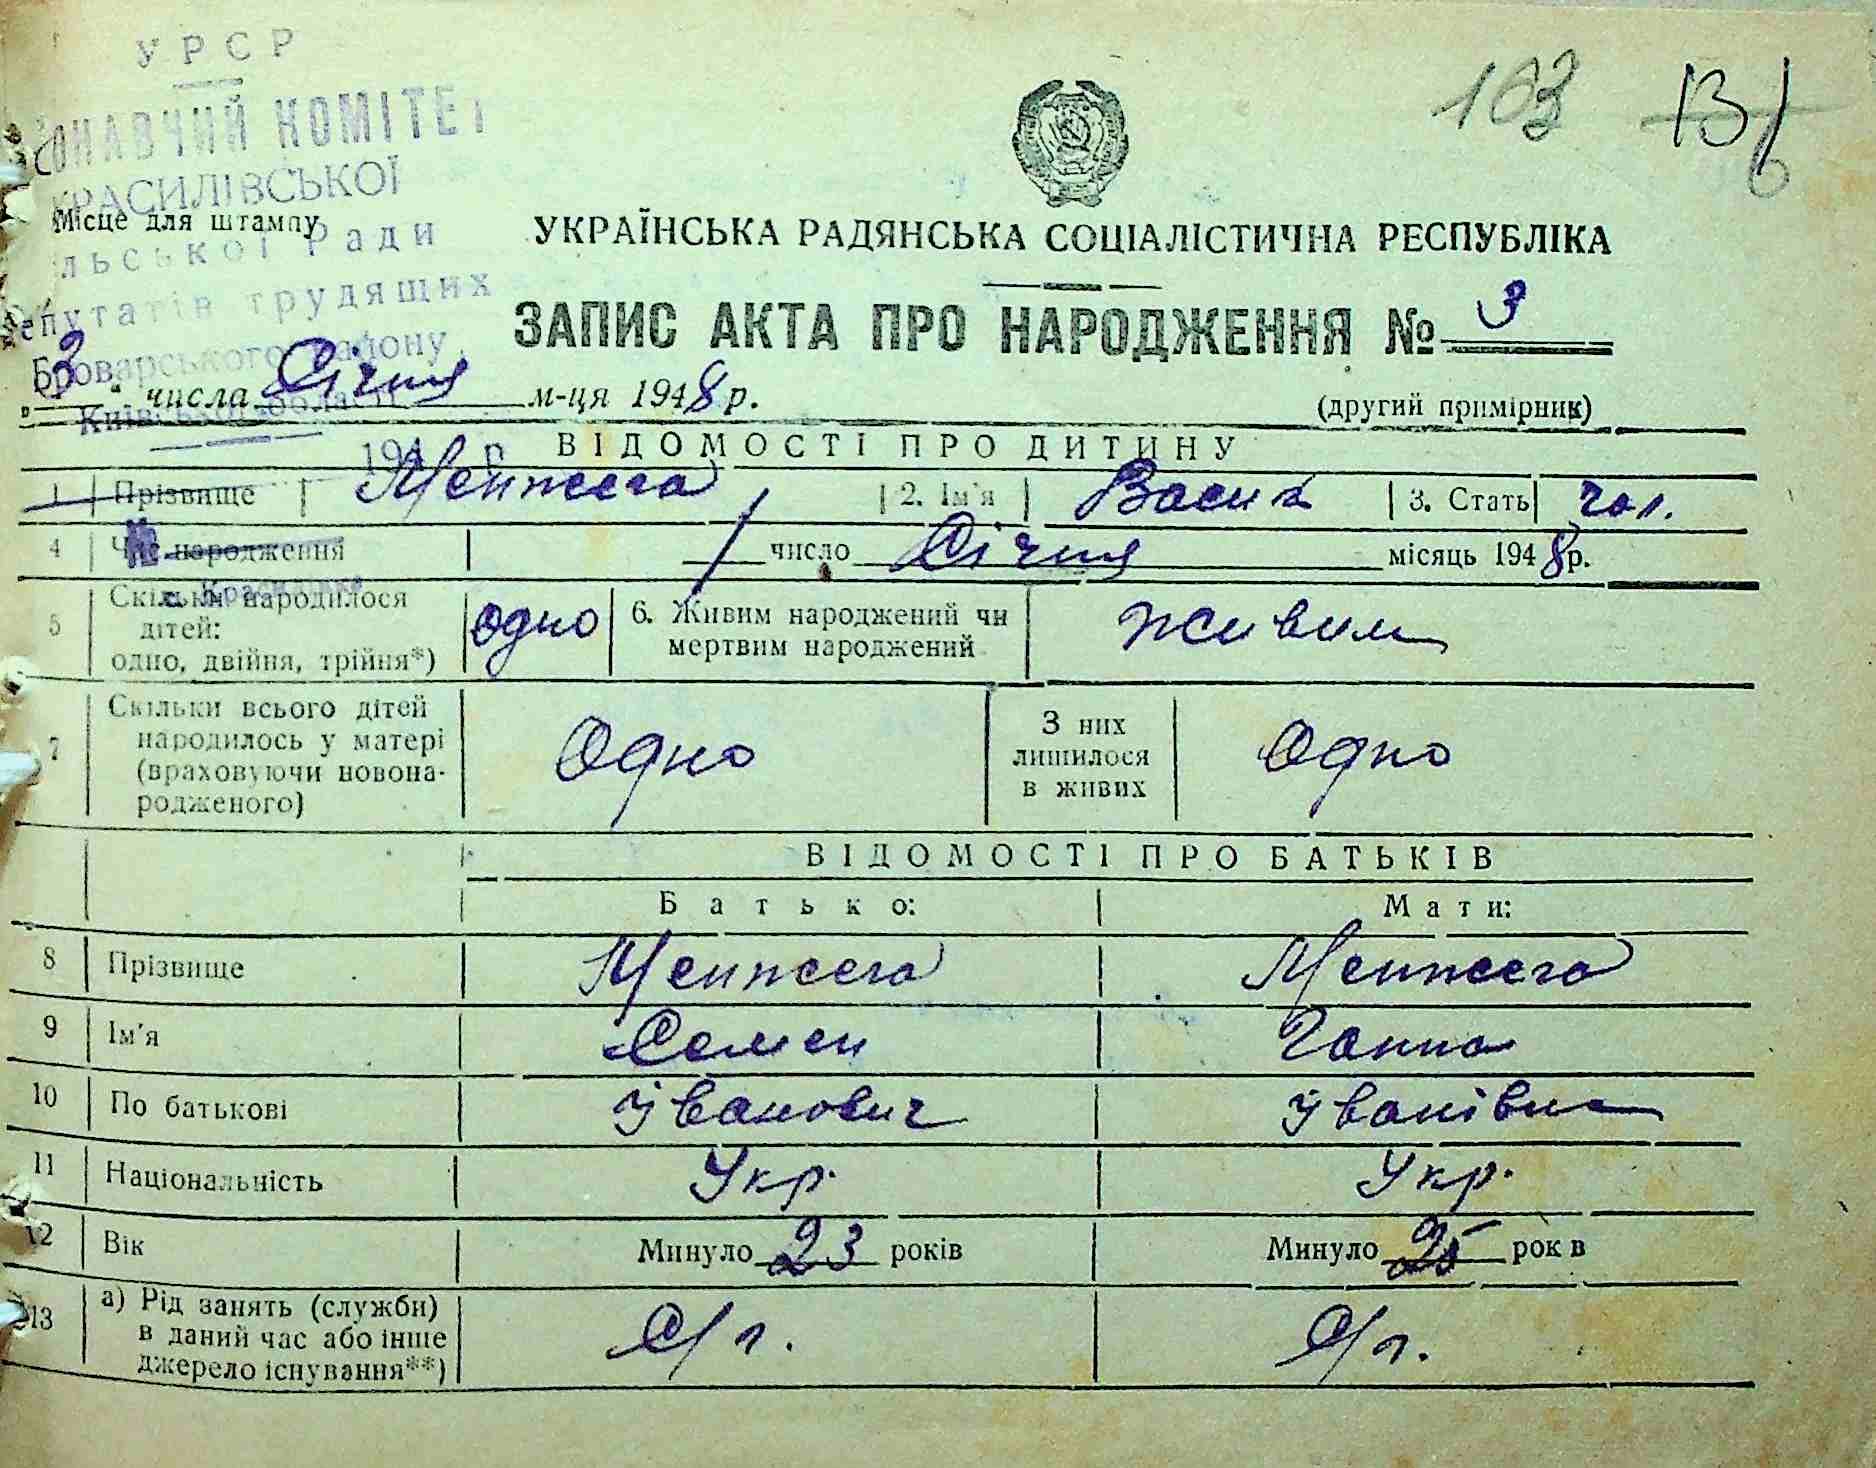 УРСР
ВИКОНАВЧИЙ КОМІТЕТ
КРАСИЛІВСЬКОЇ
Місце для штампу
сільської Ради
депутатів трудящих
Броварського району
Київської області
194 р.
103
УКРАЇНСЬКА РАДЯНСЬКА СОЦІАЛІСТИЧНА РЕСПУБЛІКА
ЗАПИС АКТА ПРО НАРОДЖЕННЯ № 3
„3" числа Січня м-ця 1948 р.
(другий примірник)
ВІДОМОСТІ ПРО ДИТИНУ
1 Прізвище Менжега 2. Ім'я Василь 3. Стать чол.
№
4 Час народження 1 число Січня місяць 1948 р.
с. Красилівка
5 Скільки народилося дітей: одно, двійня, трійня*) одно 6. Живим народжений чи мертвим народжений живим
7 Скільки всього дітей народилось у матері (враховуючи новонародженого) Одно З них лишилося в живих Одно
ВІДОМОСТІ ПРО БАТЬКІВ
Батько: Мати:
8 Прізвище Менжега Менжега
9 Ім'я Семен Ганна
10 По батькові Іванович Іванівна
11 Національність Укр. Укр.
12 Вік Минуло 23 років Минуло 25 рок в
13 а) Рід занять (служби) в даний час або інше джерело існування**) С/г. С/г.